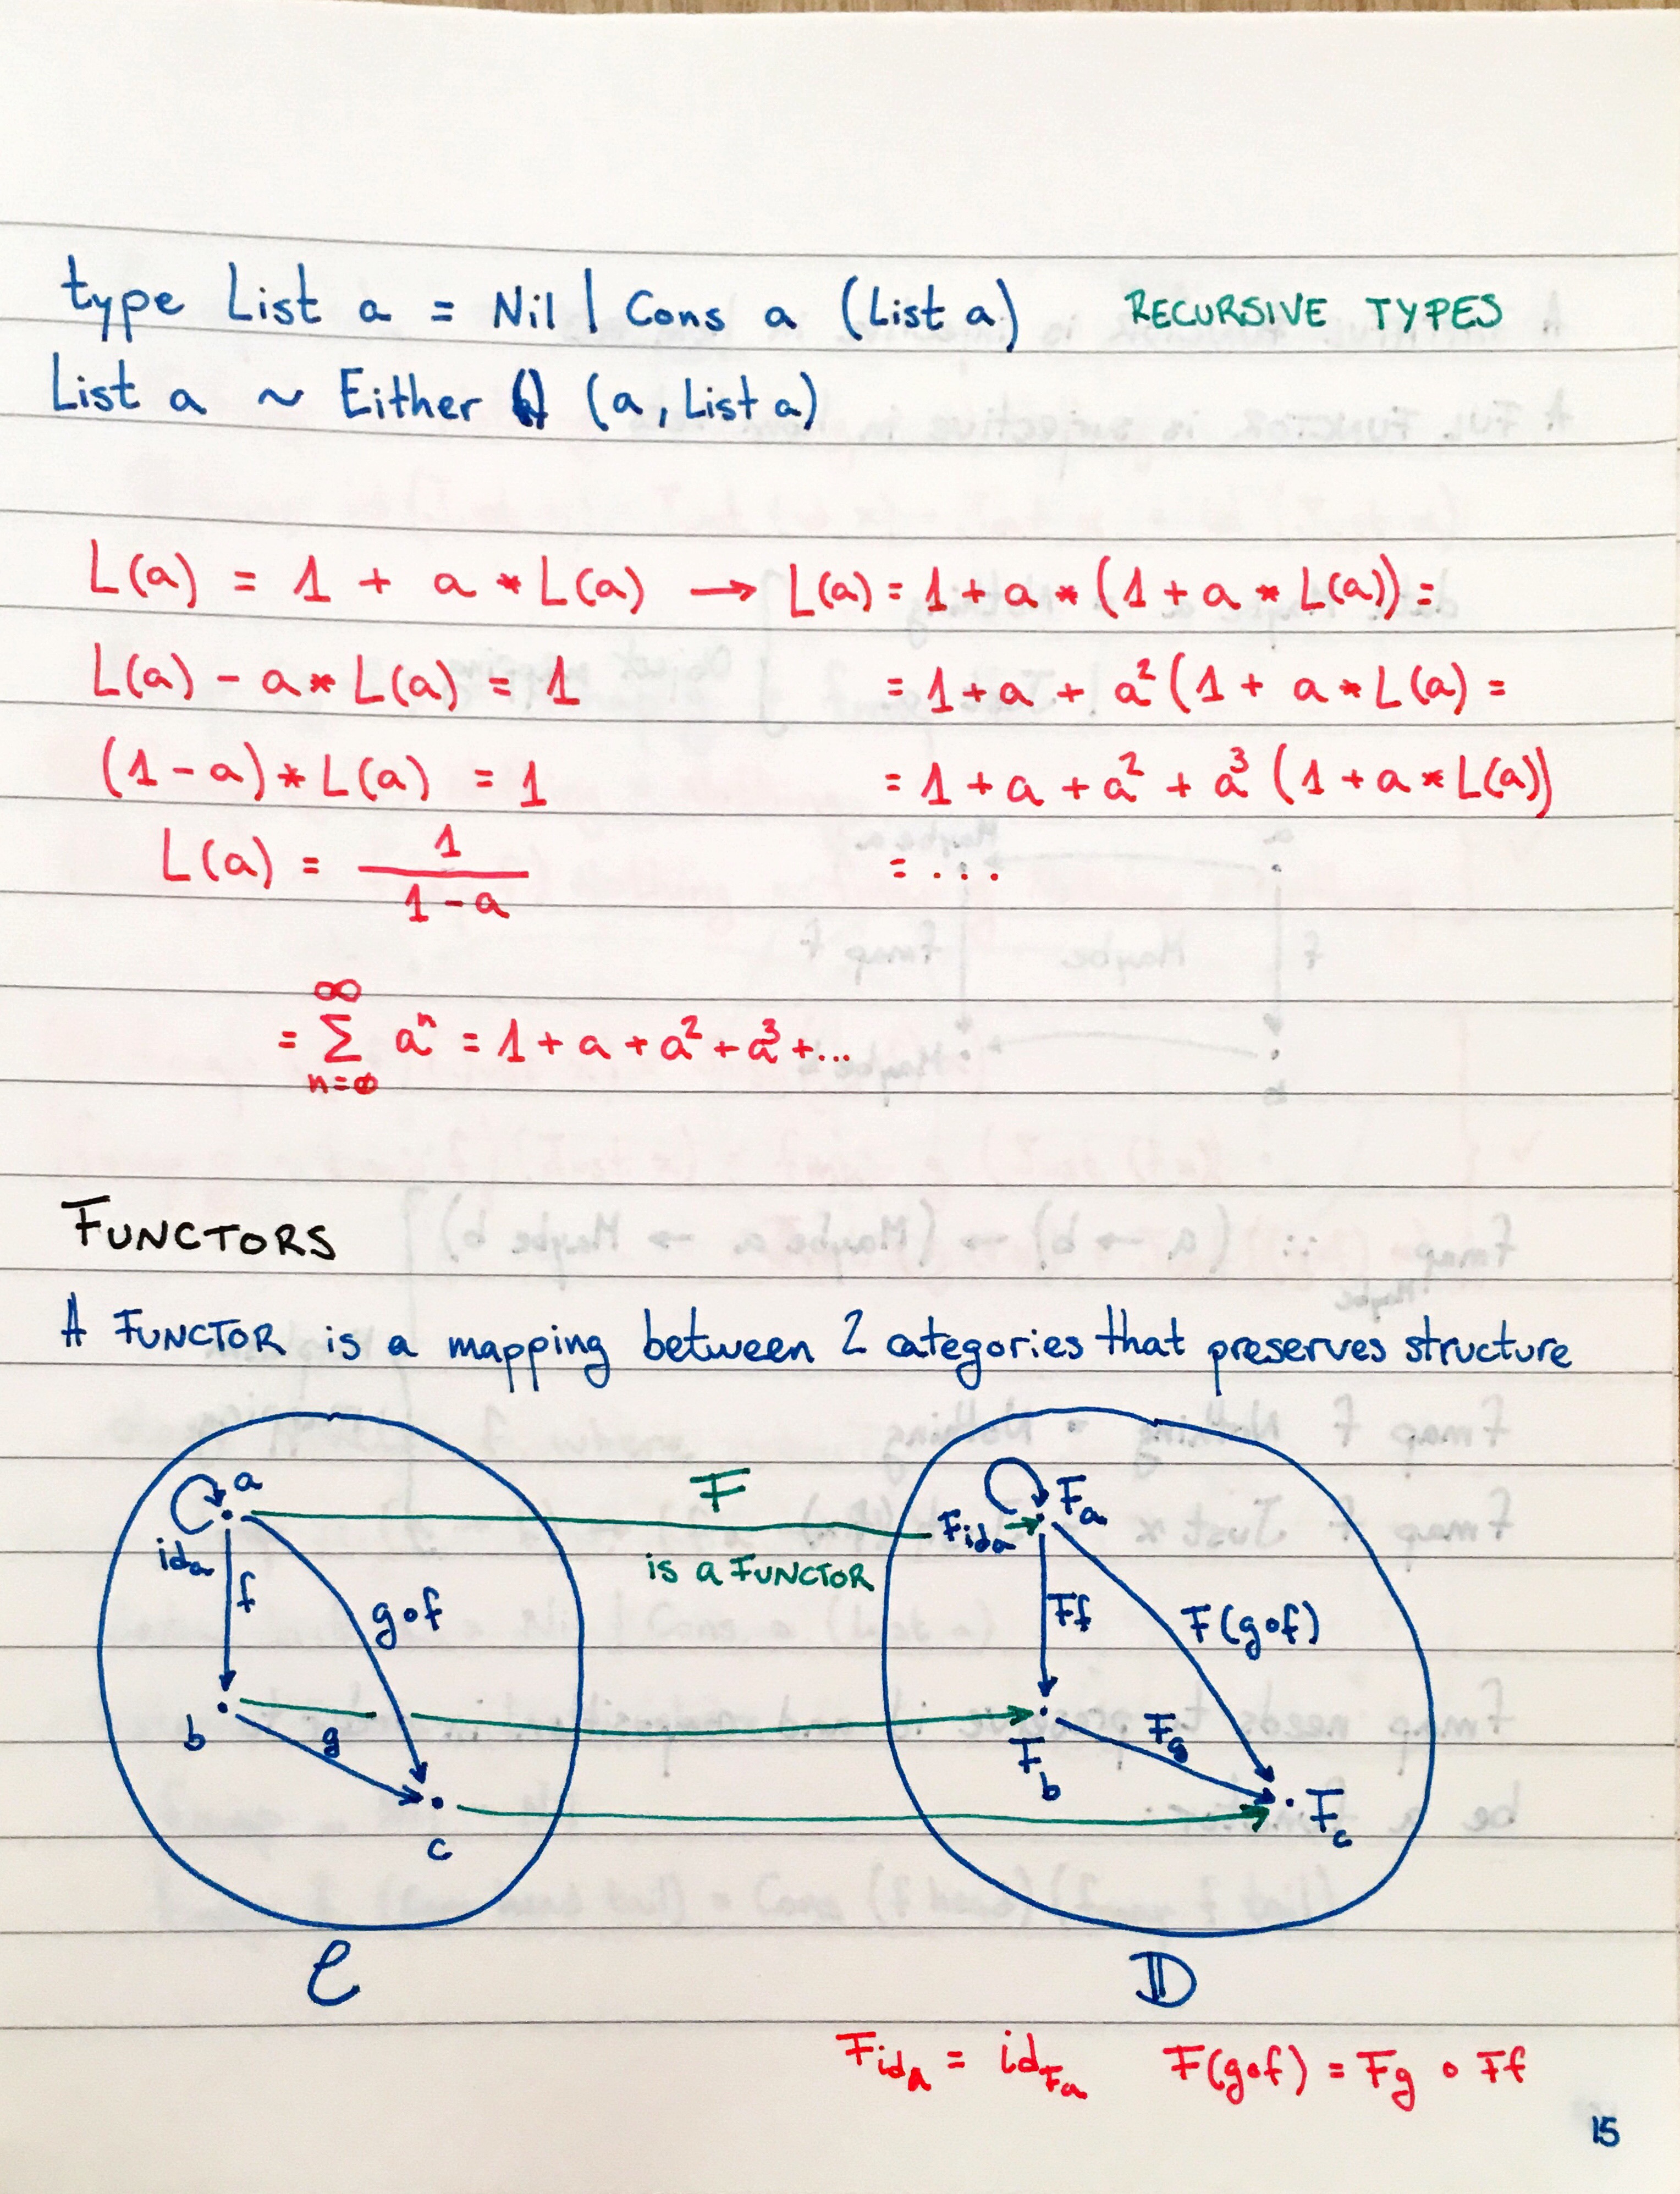 type List a = Nil | Cons a (List a) RECURSIVE TYPES
List a ~ Either () (a, List a)
L(a) = 1 + a * L(a) → L(a) = 1 + a * (1 + a * L(a)) =
L(a) - a * L(a) = 1 = 1 + a + a² (1 + a * L(a) =
(1 - a) * L(a) = 1 = 1 + a + a² + a³ (1 + a * L(a))
L(a) = 1 / 1 - a = ...
= ∞ Σ n=0 aⁿ = 1 + a + a² + a³ + ...
FUNCTORS
A FUNCTOR is a mapping between 2 categories that preserves structure
a F Fa
id_a F id_a
is a FUNCTOR
f g∘f Ff F(g∘f)
b g F_b Fg
c F_c
C D
F id_a = id_Fa F(g∘f) = Fg ∘ Ff
15